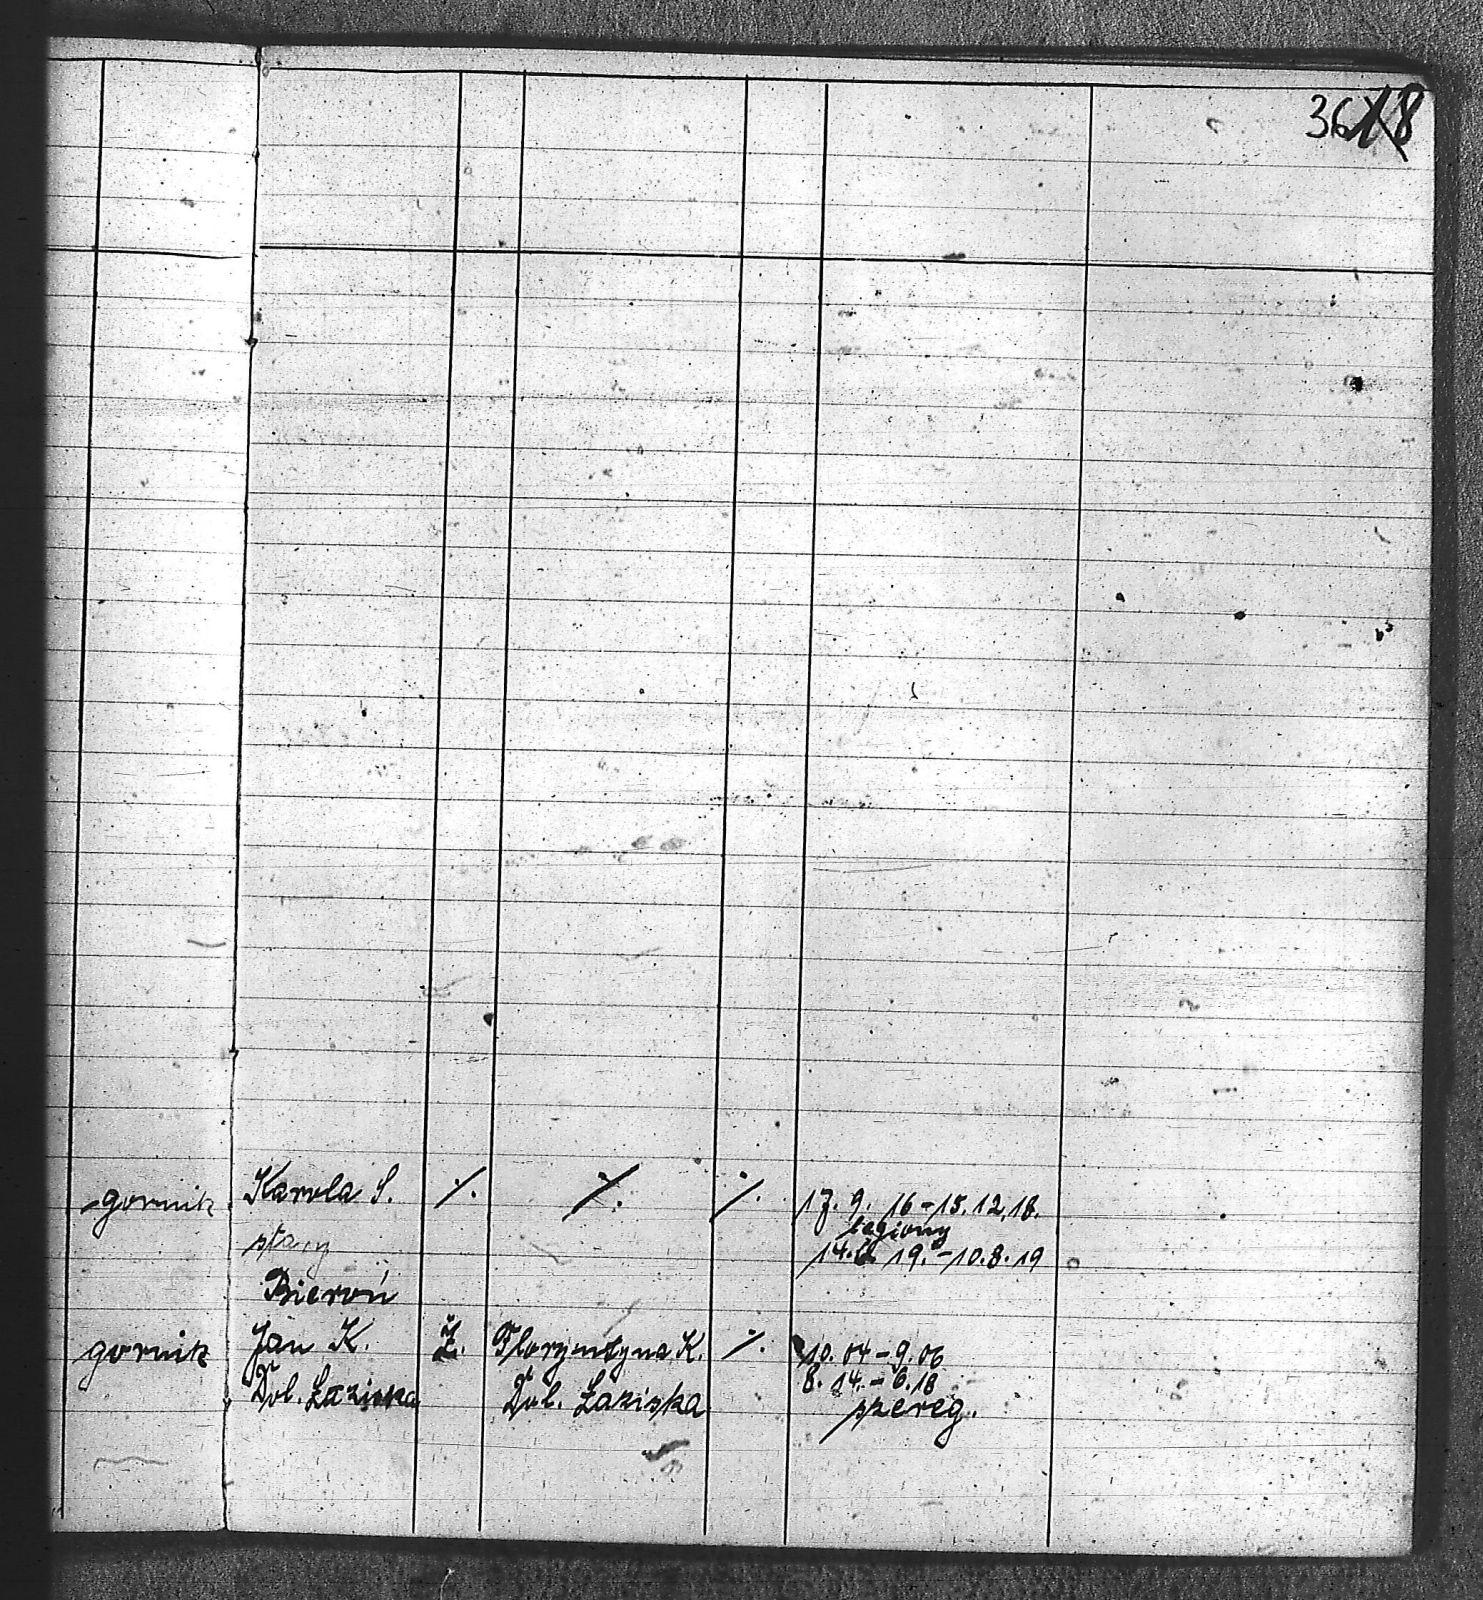 36
gornik Karola S. ·/. ·/. ·/. 17. 9. 16 - 15. 12. 18.
stary legiony
14. 19. - 10. 8. 19
Bieroń
gornik Jan K. Ż. Floryntyna K. ·/. 10. 04 - 9. 06
Dol. Łaziska Dol. Łaziska 8. 14. - 6. 18
szereg.